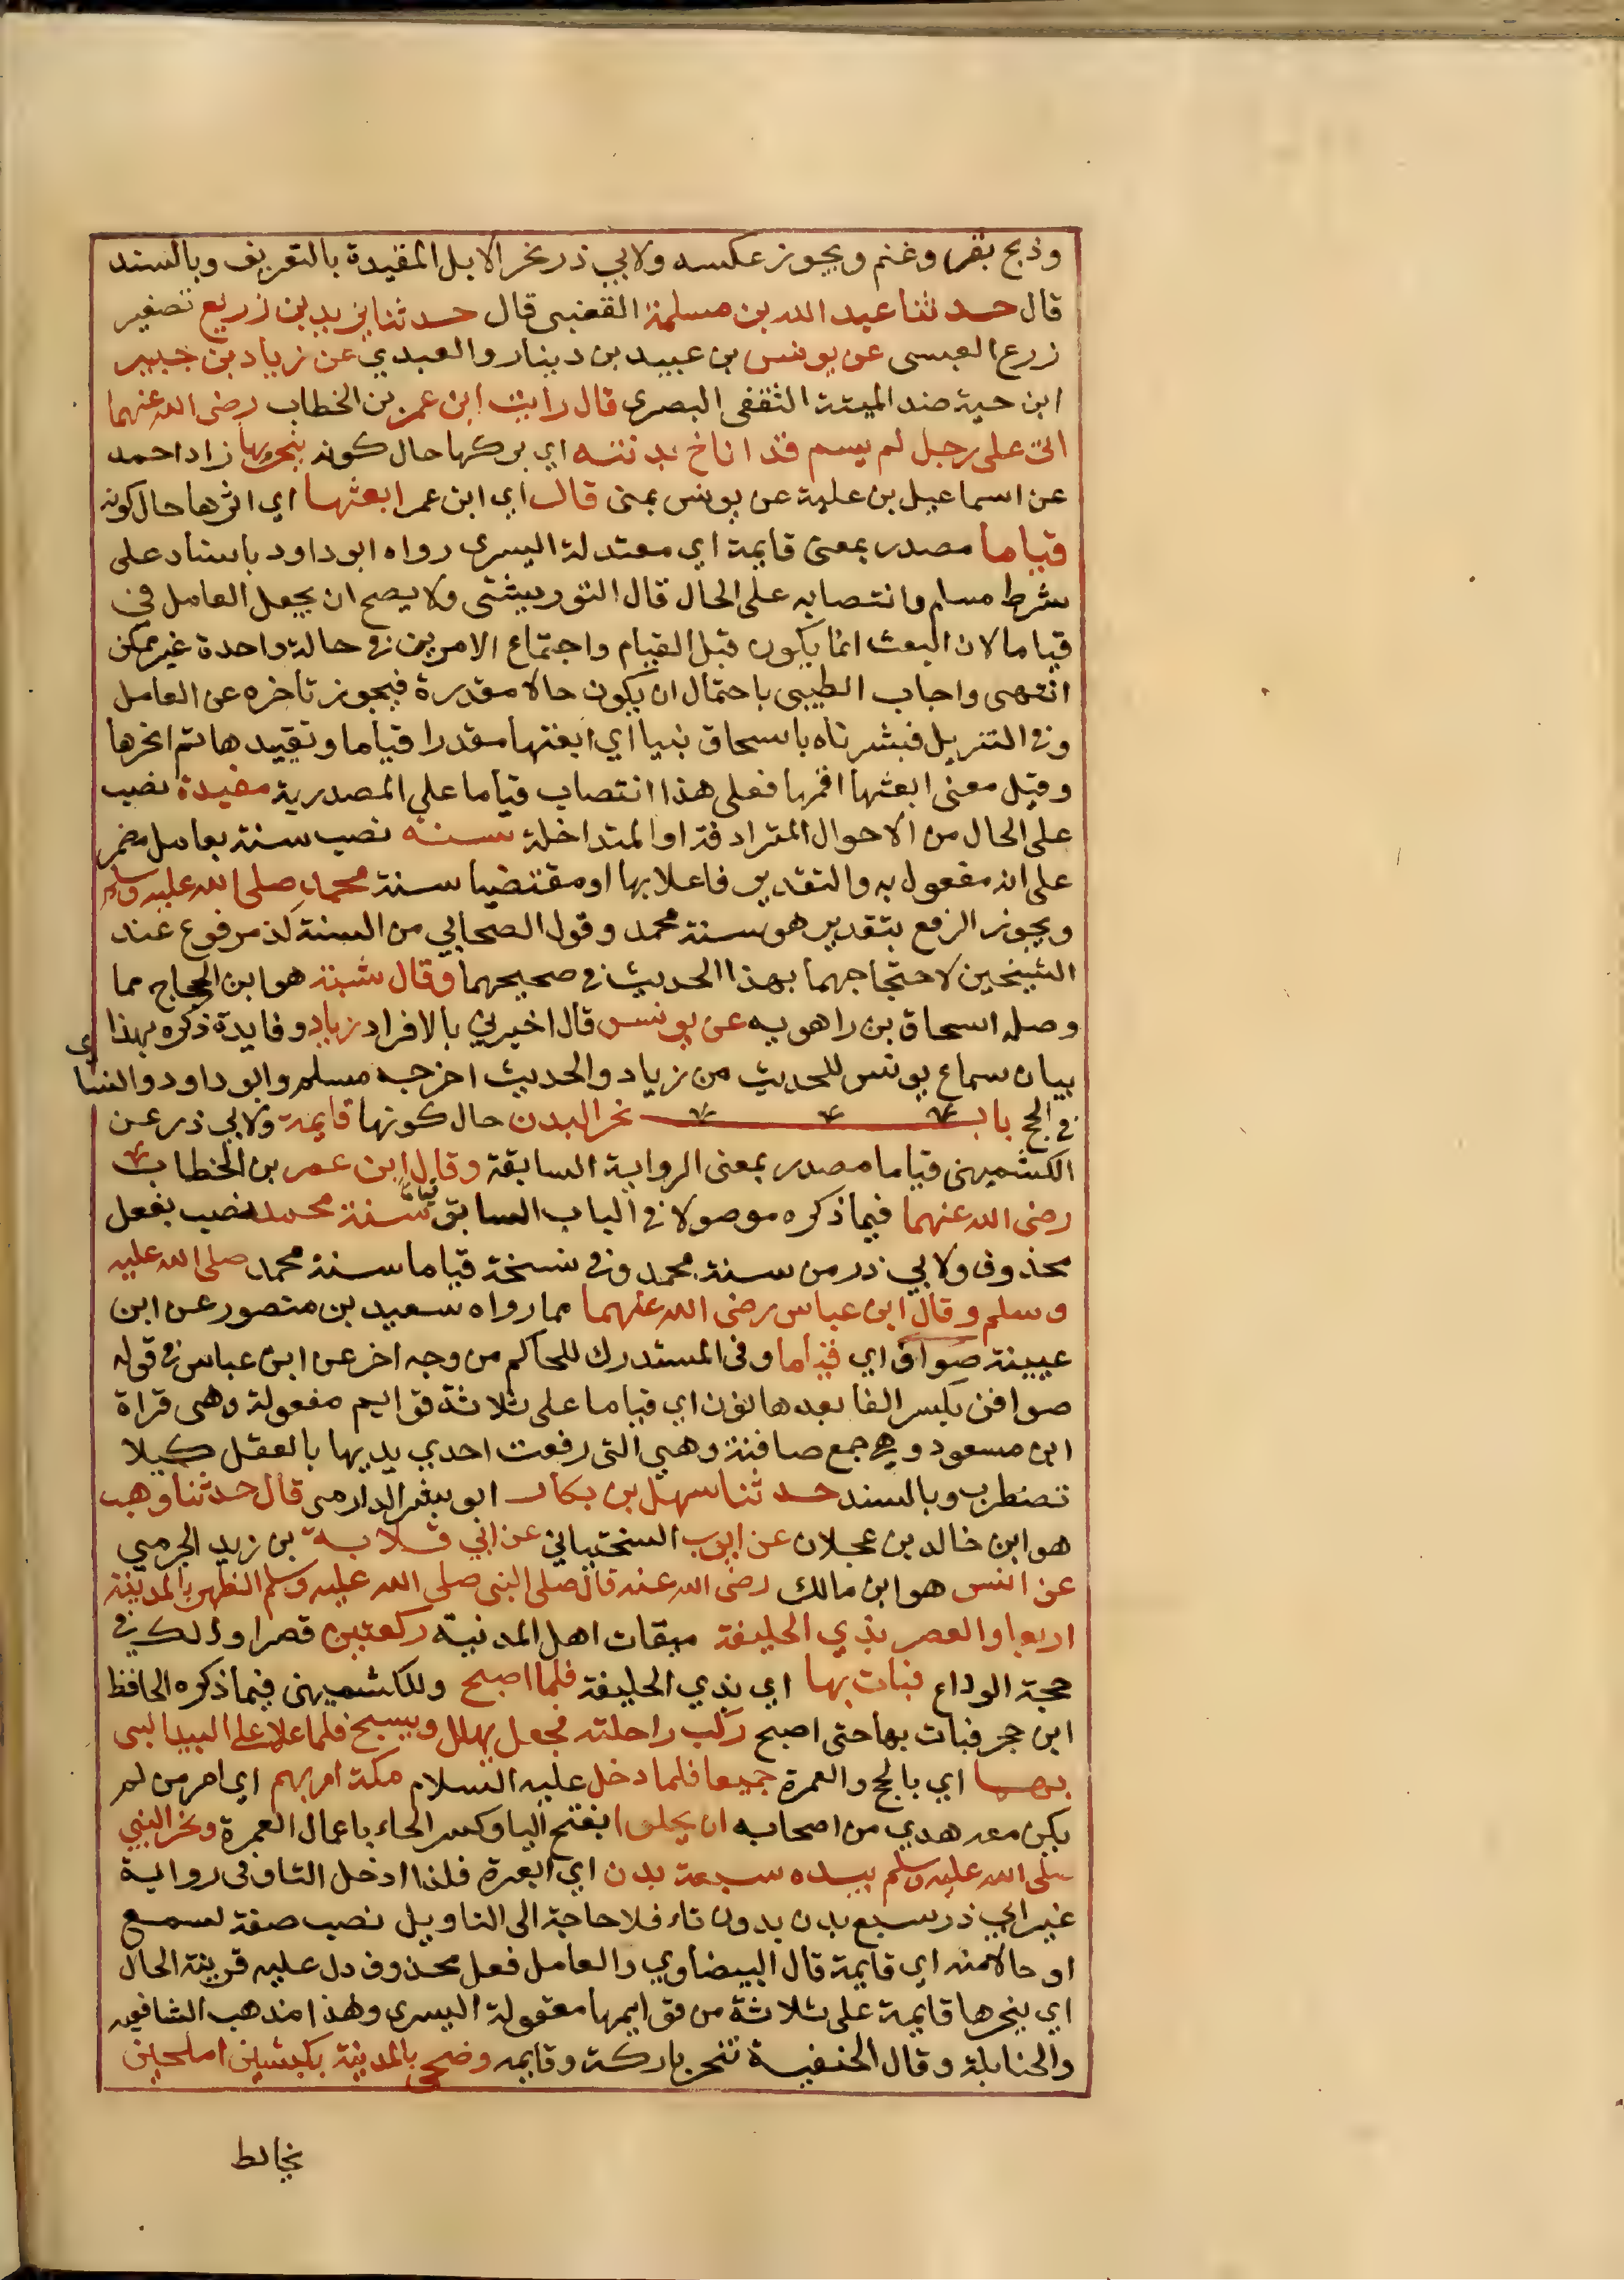 وذبح بقر وغنم ويجوز عكسه ولابي ذر نحر الابل المقيدة بالتعريف وبالسند
قال حدثنا عبد الله بن مسلمة القعنبى قال حدثنا يزيد بن زريع تصغير
زرع العبسى عن يونس بن عبيد بن دينار والعبدي عن زياد بن جبير
ابن حية ضد الميتة الثقفى البصرى قال رايت ابن عمر بن الخطاب رضى الله عنهما
اتى على رجل لم يسم قد اناخ بدنته اي بركها حال كونه ينحرها زاد احمد
عن اسماعيل بن علية عن يونس بمنى قال اي ابن عمر ابعثها اي اثرها حال كونه
قياما مصدر بمعنى قايمة اي معتدلة اليسرى رواه ابو داود باسناد على
شرط مسلم وانتصابه على الحال قال التوربيشتى ولا يصح ان يجعل العامل في
قياما لان البعث انما يكون قبل القيام واجتماع الامرين في حالة واحدة غير ممكن
انتهى واجاب الطيبى باحتمال ان يكون حالا مقدرة فيجوز تاخره عن العامل
وفي التنزيل فبشرناه باسحاق نبيا اي ابعثها مقدرا قياما وتقييدها ثم انحرها
وقيل معنى ابعثها اقمها فعلى هذا انتصاب قياما على المصدرية مقيدة نصب
على الحال من الاحوال المترادفة او المتداخلة سنة نصب سنة بعامل مضمر
على انه مفعول به والتقدير فاعلا بها او مقتضيا سنة محمد صلى الله عليه وسلم
ويجوز الرفع بتقدير هو سنة محمد وقول الصحابي من السنة كذا مرفوع عند
الشيخين لاحتجاجهما بهذا الحديث في صحيحهما وقال شعبة هو ابن الحجاج مما
وصله اسحاق بن راهويه عن يونس قال اخبرني بالافراد زياد وفايدة ذكره بهذا
بيان سماع يونس للحديث من زياد والحديث اخرجه مسلم وابو داود والنساي
في الحج باب نحر البدن حال كونها قايمة ولابي ذر عن
الكشميهنى قياما مصدر بمعنى الرواية السابقة وقال ابن عمر بن الخطاب
رضى الله عنهما فيما ذكره موصولا في الباب السابق سنة محمد نصب بفعل
محذوف ولابي ذر من سنة محمد وفي نسخة قياما سنة محمد صلى الله عليه
وسلم وقال ابن عباس رضى الله عنهما مما رواه سعيد بن منصور عن ابن
عيينة صواف اي قياما وفى المستدرك للحاكم من وجه اخر عن ابن عباس في قوله
صوافن بكسر الفا بعدها نون اي قياما على ثلاثة قوايم مفعولة وهى قراة
ابن مسعود وهي جمع صافنة وهي التى رفعت احدي يديها بالعقل كيلا
تضطرب وبالسند حدثنا سهل بن بكار ابو بشر الدارمى قال حدثنا وهب
هو ابن خالد بن عجلان عن ايوب السختياني عن ابي قلابة بن زيد الجرمي
عن انس هو ابن مالك رضى الله عنه قال صلى النبى صلى الله عليه وسلم الظهر بالمدينة
اربعا والعصر بذي الحليفة ميقات اهل المدنية ركعتين قصرا وذلك في
حجة الوداع فبات بها اي بذي الحليفة فلما اصبح وللكشميهنى فيما ذكره الحافظ
ابن حجر فبات بها حتى اصبح ركب راحلته فجعل يهلل ويسبح فلما علا على البيدا لبى
بهما اي بالحج والعمرة جميعا فلما دخل عليه السلام مكة امرهم اي امر من لم
يكن معه هدي من اصحابه ان يحلوا بفتح اليا وكسر الحاء باعمال العمرة ونحر النبي
صلى الله عليه وسلم بيده سبعة بدن اي ابعرة فلذا ادخل التا وفى رواية
غير ابي ذر سبع بدن بدون تاء فلا حاجة الى التاويل نصب صفة لسبع
او حالا منه اي قايمة قال البيضاوي والعامل فعل محذوف دل عليه قرينة الحال
اي ينحرها قايمة على ثلاثة من قوايمها معقولة اليسرى وهذا مذهب الشافعيه
والحنابلة وقال الحنفية تنحر باركة وقايمه وضحى بالمدينة بكبشين املحين